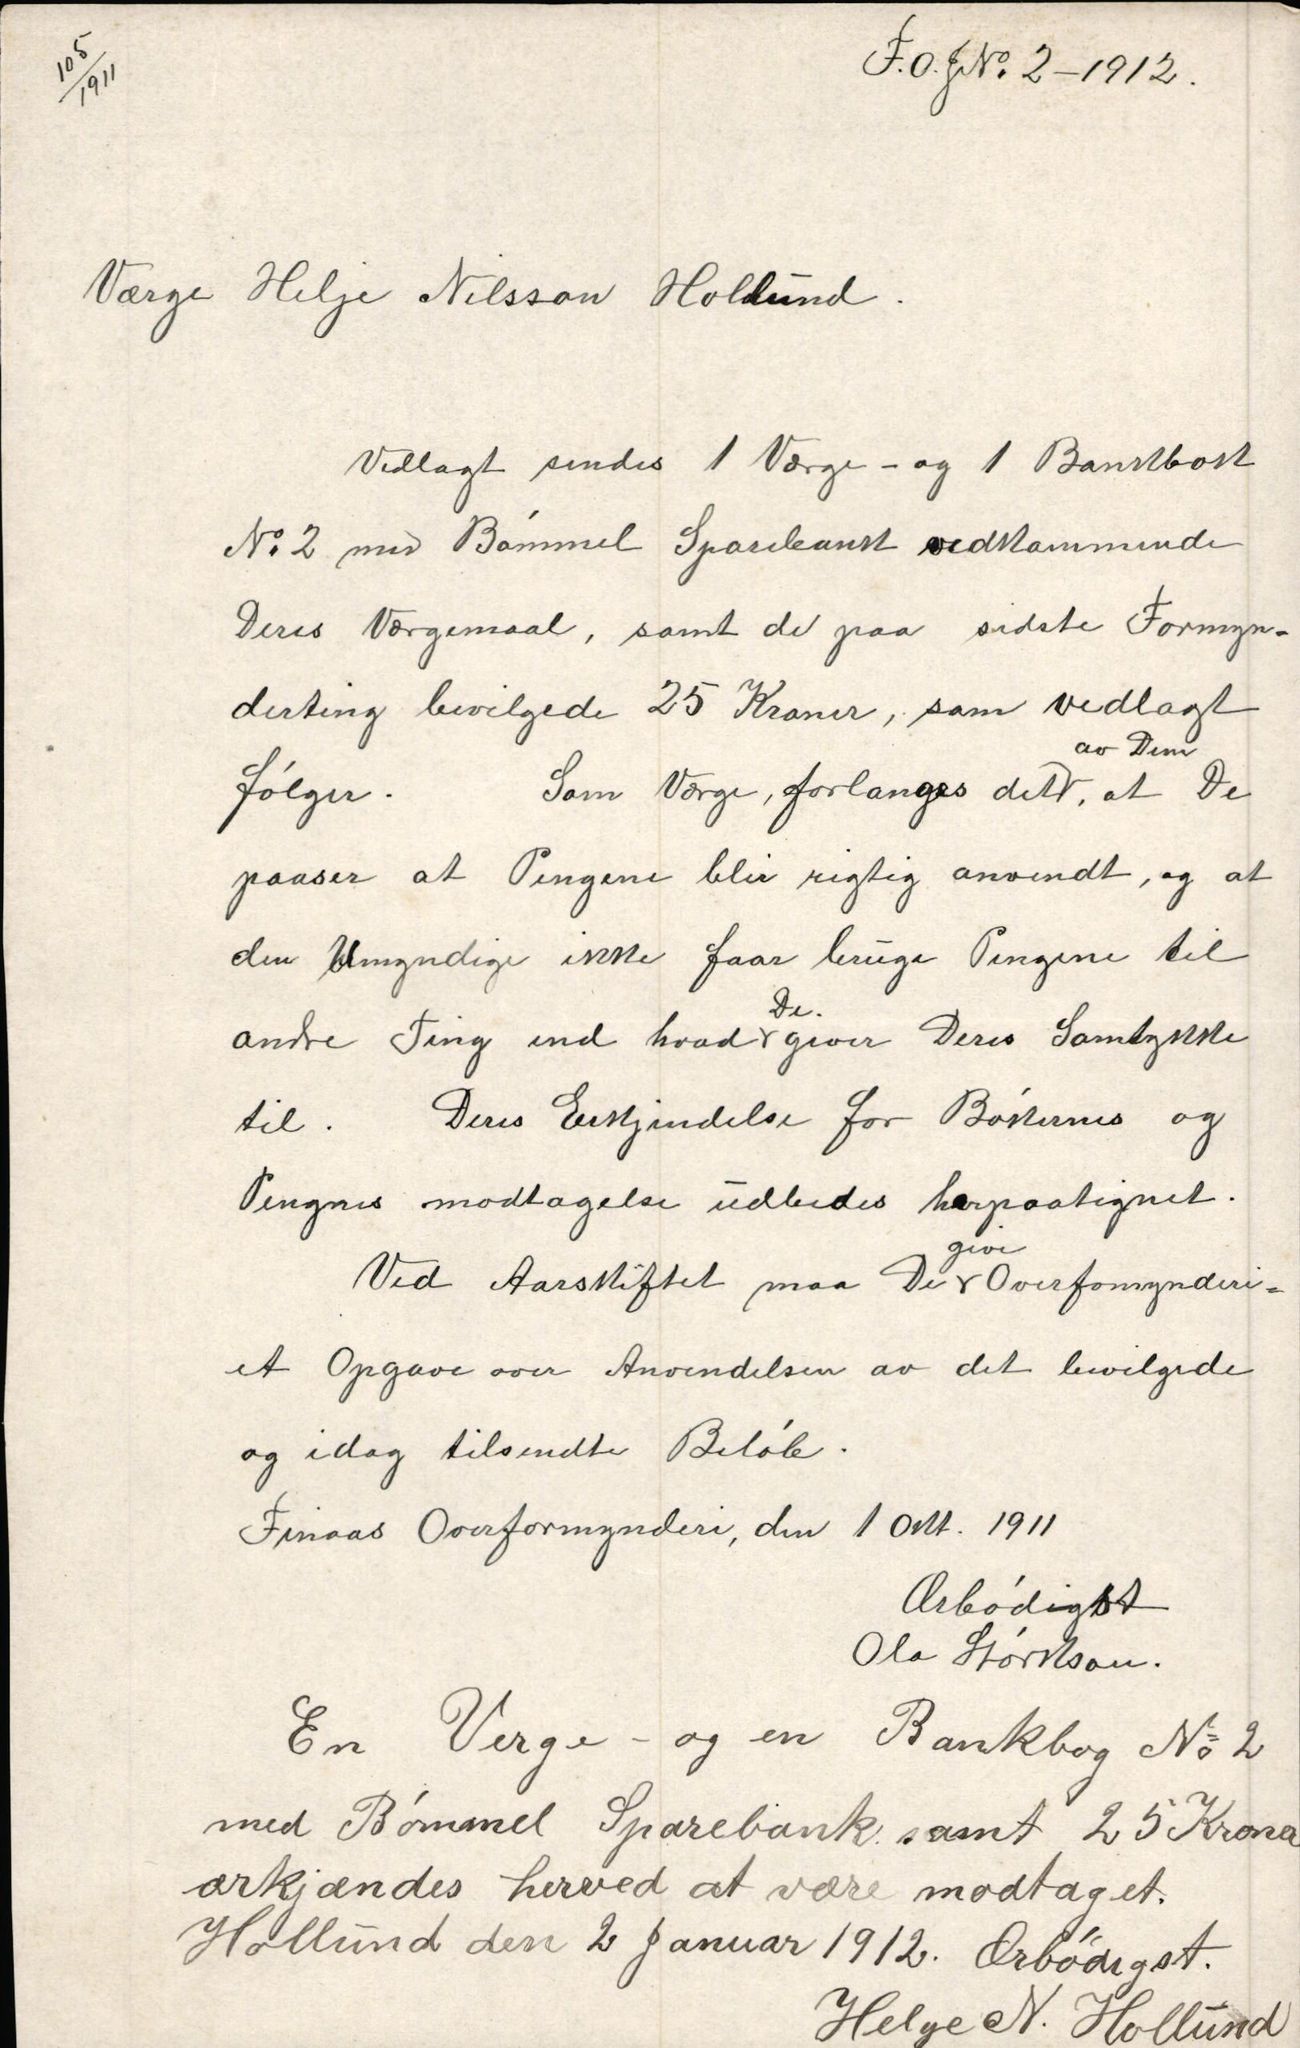 105/1911
F.O.J.No. 2 - 1912.
Værge Helje Nilsson Hollund.
Vedlagt sendes 1 Værge - og 1 Bankbok
No. 2 med Bømmel Sparebank vedkommende
Deres Værgemaal, samt de paa sidste Formyn-
derting bevilgede 25 Kroner, som vedlagt
følger. Som Værge, forlanges det av Dem, at De
paaser at Pengene blir rigtig anvendt, og at
den Umyndige ikke faar bruge Pengene til
andre Ting end hvad De. giver Deres Samtykke
til. Deres Erkjendelse for Bøkernes og
Pengnes modtagelse udbedes herpaategnet.
Ved Aarskiftet maa De give Overfomynderi-
et Opgave over Anvendelsen av det bevilgede
og idag tilsendte Beløb.
Finaas Overformynderi, den 1 Okt. 1911
Ærbødigst
Ola Størkson.
En Verge - og en Bankbog No 2
med Bømmel Sparebank samt 25 Kroner
ærkjændes herved at være modtaget.
Hollund den 2 Januar 1912. Ærbødigst.
Helge N. Hollund